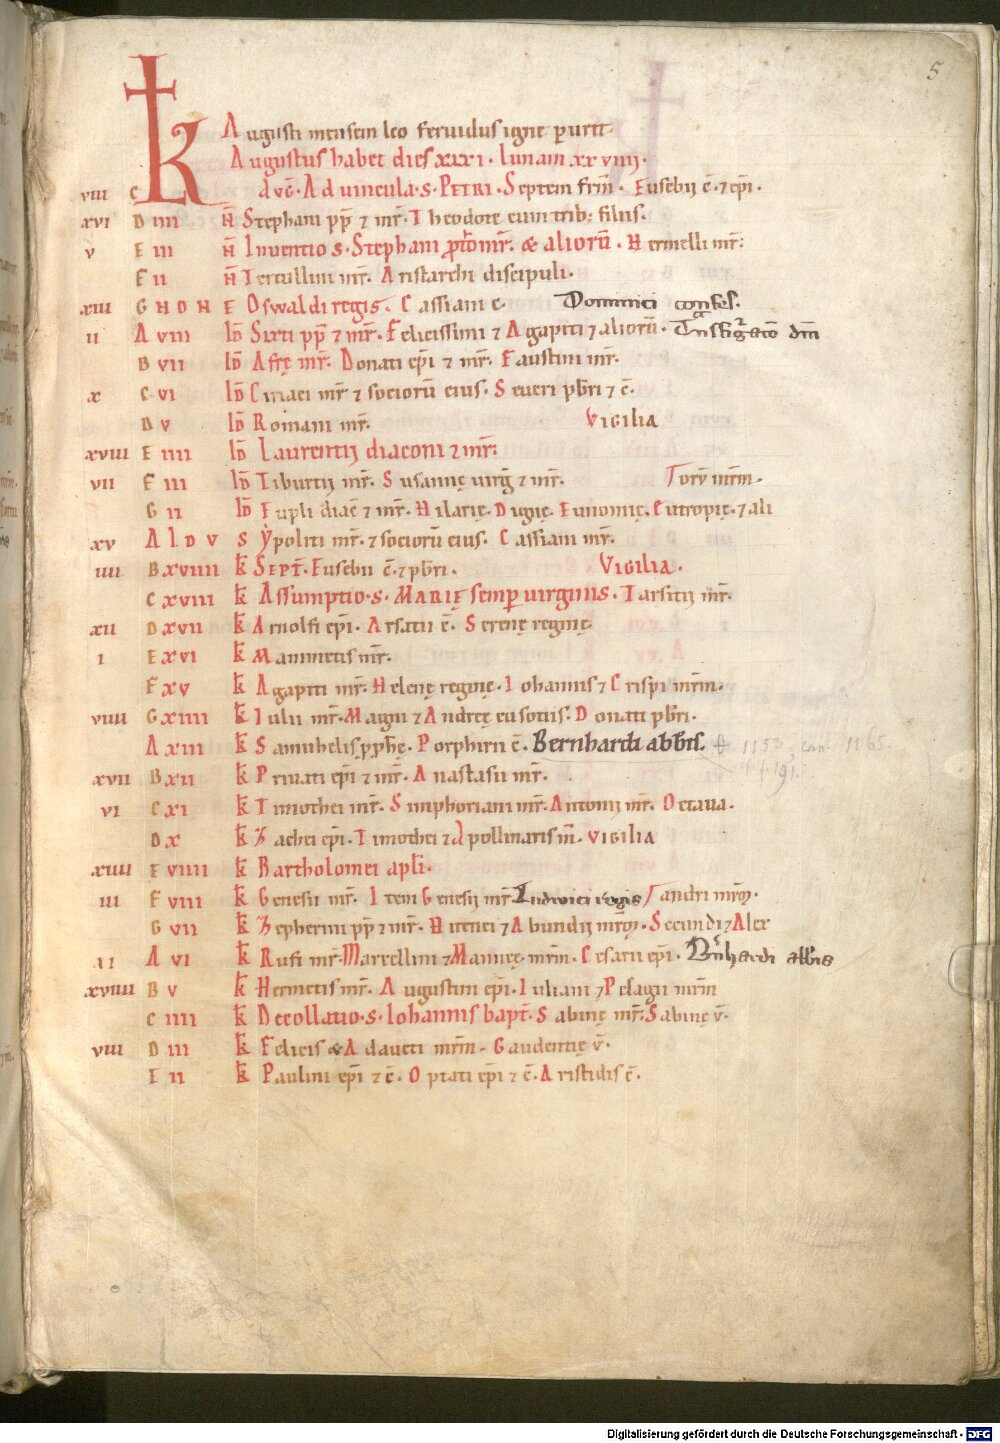 5
K Augusti mensem leo feruidus igne perurit.
Augustus habet dies xxxi. Lunam xxviiij.
viii C aug̅. Ad uincula. s. PETRI. Septem fr̅m. Eusebij c̅. ⁊ ep̅i.
xvi D iiii N̅ Stephani pp̅ ⁊ mr̅. Theodote cum trib; filiis.
v E iii N̅ Inuentio s. Stephani p̅tom̅r. & alioru̅. Hermelli mr̅.
F ii N̅ Tertullini mr̅. Aristarchi discipuli.
xiii G NON E Oswaldi regis. Cassiani c. Dominici confes.
ii A viii Id̅ Sixti pp̅ ⁊ mr̅. Felicissimi ⁊ Agapiti ⁊ alioru̅. Tnsfigᵃtio dni̅
B vii Id̅ Afrę mr̅. Donati ep̅i ⁊ mr̅. Faustini mr̅.
x C vi Id̅ Ciriaci mr̅ ⁊ socioru̅ eius. Seueri pb̅ri ⁊ c̅.
D v Id̅ Romani mr̅. VIGILIA
xviii E iiii Id̅ Laurentij diaconi ⁊ mr̅.
vii F iii Id̅ Tiburtij mr̅. Susannę uirg̅ ⁊ mr̅.
G ii Id̅ Eupli diac̅ ⁊ mr̅. Hilarię. Dignę. Eunomię. Eutropię. ⁊ ali
xv A IDVS ypoliti mr̅. ⁊ socioru̅ eius. Cassiani mr̅.
iiii B xviiii k̅ SEPT̅. Eusebii c̅. ⁊ pb̅ri. VIGILIA.
C xviii k̅ Assumptio. s. MARIĘ semp̲ uirginis. Tarsitij mr̅.
xii D xvii k̅ Arnolfi ep̅i. Arsatii c̅. Serenę reginę
i E xvi k̅ Mammetis mr̅.
F xv k̅ Agapiti mr̅. Helenę reginę. Iohannis ⁊ Crispi mr̅m.
viiii G xiiii k̅ Iulii mr̅. Magni ⁊ Andreę cu sotiis. Donati pb̅ri.
A xiii k̅ Samuhelis pp̅hę. Porphirii c̅. Bernhardi abb̅is. 1153. can. 1165.
xvii B xii k̅ Priuati ep̅i ⁊ mr̅. Anastasii mr̅.
vi C xi k̅ Timothei mr̅. Simphoriani mr̅. Antonij mr̅. Octaua.
D x k̅ Zachei ep̅i. Timothei ⁊ Apollinaris m̅. VIGILIA
xiiii E viiii k̅ Bartholomei apl̅i.
iii F viii k̅ Genesii mr̅. Item Genesij mr̅. Ludwici regis
G vii k̅ Zepherini pp̅ ⁊ mr̅. Hirenei ⁊ Abundij mr̅m. Secundi ⁊ Alex
xi A vi k̅ Rufi mr̅. Marcellini ⁊ Mannęę mr̅m. Cesarii ep̅i. Bn̅hardi abbis
xviiii B v k̅ Hermetis mr̅. Augustini ep̅i. Iuliani ⁊ Pelagii mr̅m
C iiii k̅ Decollatio. s. Iohannis bapt̅. Sabinę mr̅. Sabinę v̅.
viii D iii k̅ Felicis & Adaucti mr̅m. Gaudentię v̅.
E ii k̅ Paulini ep̅i ⁊ c̅. Optati ep̅i ⁊ c̅. Aristidis c̅.
Digitalisierung gefördert durch die Deutsche Forschungsgemeinschaft - DFG